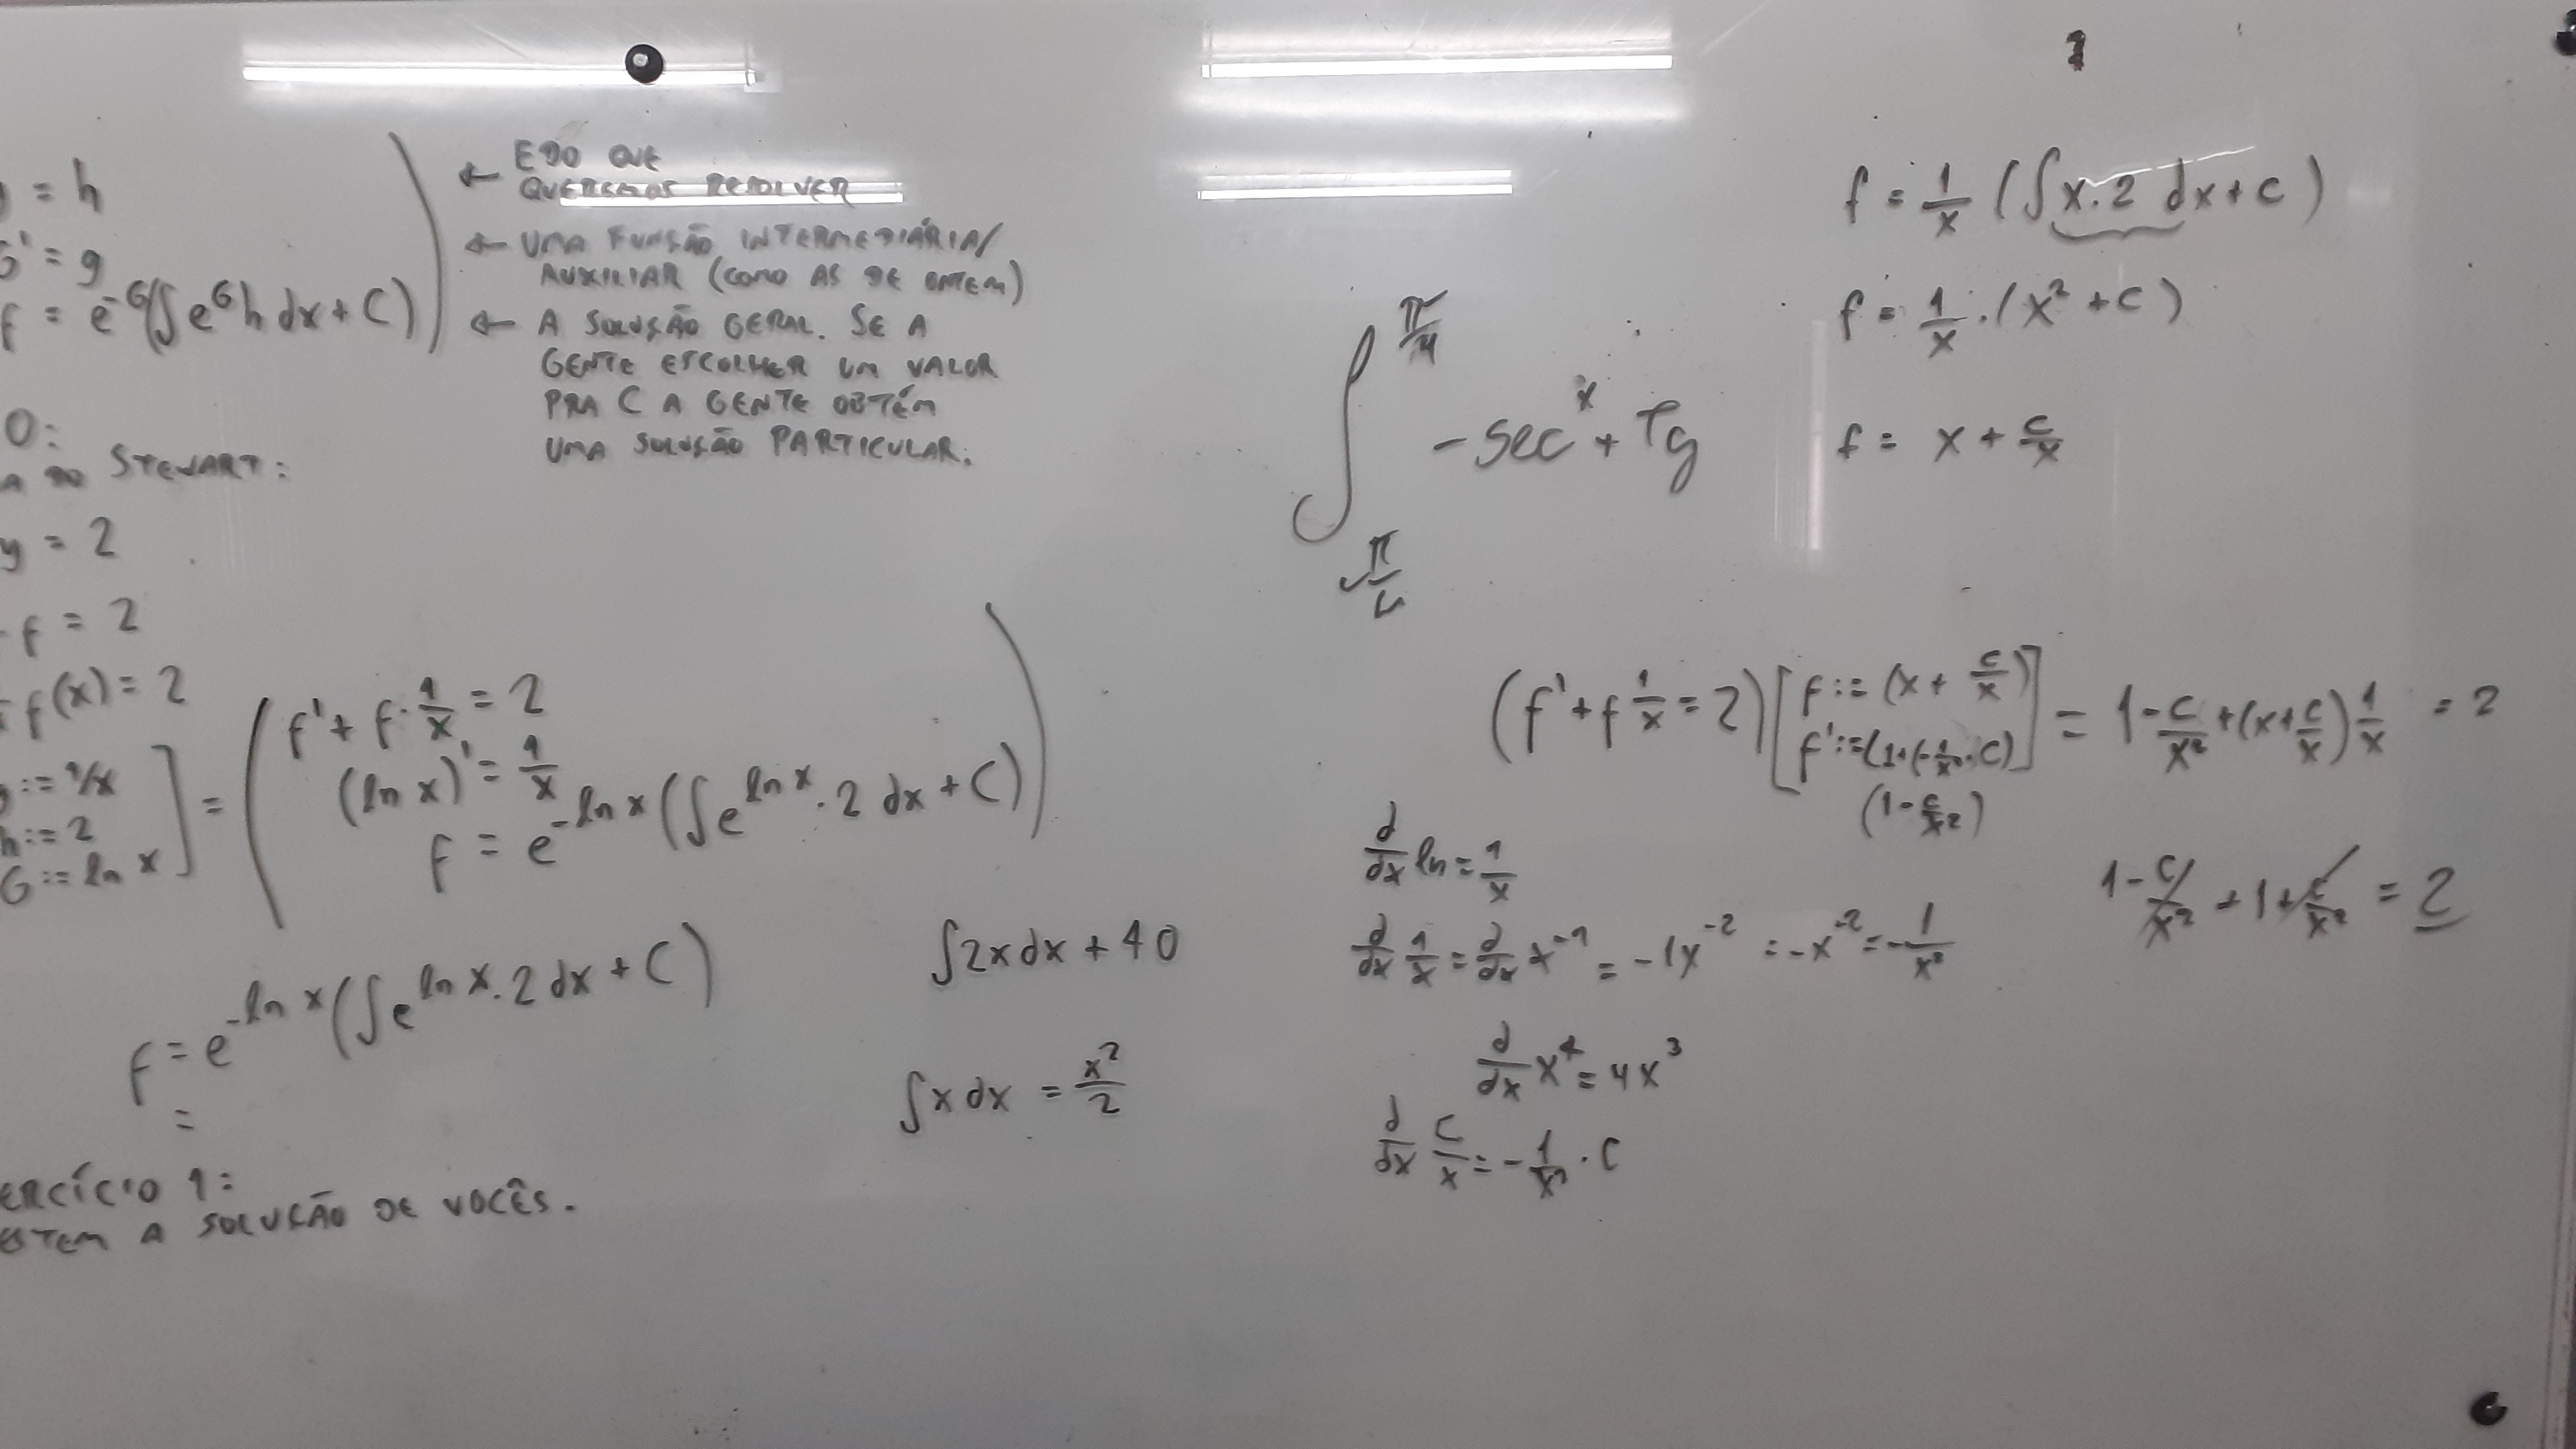 = h
← EDO QUE
QUEREMOS RESOLVER
G' = g
← UMA FUNÇÃO INTERMEDIÁRIA/
AUXILIAR (COMO AS DE ONTEM)
f = e^-G(∫e^G h dx + C)
← A SOLUÇÃO GERAL. SE A
GENTE ESCOLHER UM VALOR
PRA C A GENTE OBTÉM
UMA SOLUÇÃO PARTICULAR.
O:
A DO STEWART:
y = 2
f = 2
f(x) = 2
g := 1/x
h := 2
G := ln x ] =
f' + f · 1/x = 2
(ln x)' = 1/x
f = e^-ln x (∫e^ln x · 2 dx + C)
f = e^-ln x (∫e^ln x · 2 dx + C)
=
ERCÍCIO 1:
STEM A SOLUÇÃO DE VOCÊS.
∫2x dx + 40
∫x dx = x²/2
∫ - sec x + Tg
π/4
f = 1/x (∫x.2 dx + c)
f = 1/x · (x² + c)
f = x + c/x
(f' + f 1/x = 2) [f := (x + c/x)
f' := (1+(-1/x² · C)] = 1 - c/x² + (x + c/x) 1/x = 2
(1 - c/x²)
1 - c/x² + 1 + c/x² = 2
d/dx ln = 1/x
d/dx 1/x = d/dx x^-1 = -1x^-2 = -x^-2 = -1/x²
d/dx x^4 = 4x³
d/dx c/x = -1/x² · C